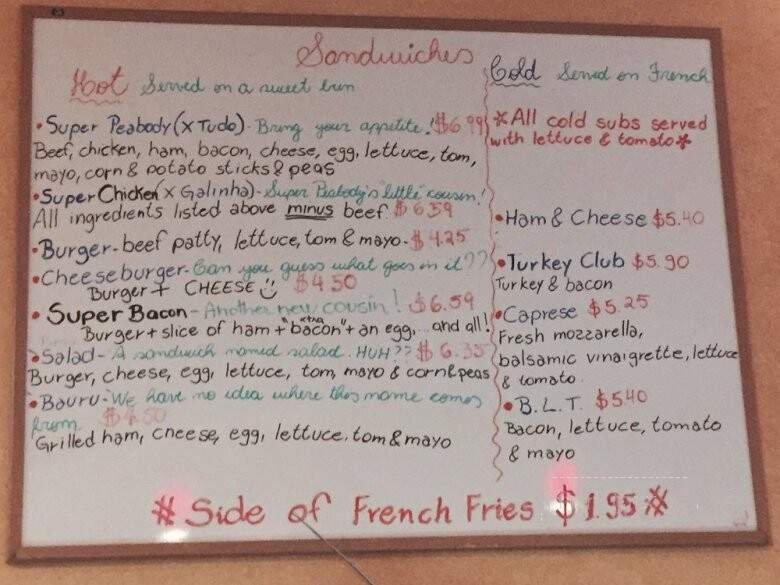 Sandwiches
Hot Served on a sweet bun
• Super Peabody (X Tudo) - Bring your appetite! $6.99
Beef, chicken, ham, bacon, cheese, egg, lettuce, tom,
mayo, corn & potato sticks & peas
• Super Chicken (X Galinha) - Super Peabody's little cousin!
All ingredients listed above minus beef $6.59
• Burger - beef patty, lettuce, tom & mayo - $4.25
• Cheeseburger - Can you guess what goes on it??
Burger + CHEESE $4.50
• Super Bacon - Another new cousin! $6.59
Burger + slice of ham + "xtra bacon" + an egg, ... and all!
• Salad - A sandwich named salad. HUH?? $6.35
Burger, cheese, egg, lettuce, tom, mayo & corn & peas
• Bauru - We have no idea where this name comes
from. $4.50
Grilled ham, cheese, egg, lettuce, tom & mayo
Cold Served on French
*All cold subs served
with lettuce & tomato*
• Ham & Cheese $5.40
• Turkey Club $5.90
Turkey & bacon
• Caprese $5.25
Fresh mozzarella,
balsamic vinaigrette, lettuce
& tomato
• B.L.T. $5.40
Bacon, lettuce, tomato
& mayo
* Side of French Fries $1.95 *